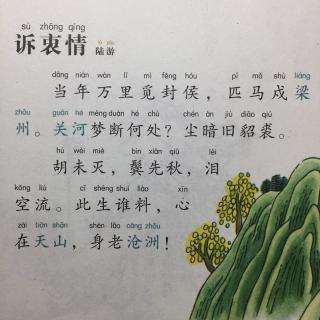 sù zhōng qíng
诉衷情 陆游
dāng nián wàn lǐ mì fēng hóu pǐ mǎ shù liáng
当年万里觅封侯，匹马戍梁
zhōu guān hé mèng duàn hé chù chén àn jiù diāo qiú
州。关河梦断何处？尘暗旧貂裘。
hú wèi miè bìn xiān qiū lèi
胡未灭，鬓先秋，泪
kōng liú cǐ shēng shuí liào xīn
空流。此生谁料，心
zài tiān shān shēn lǎo cāng zhōu
在天山，身老沧洲！